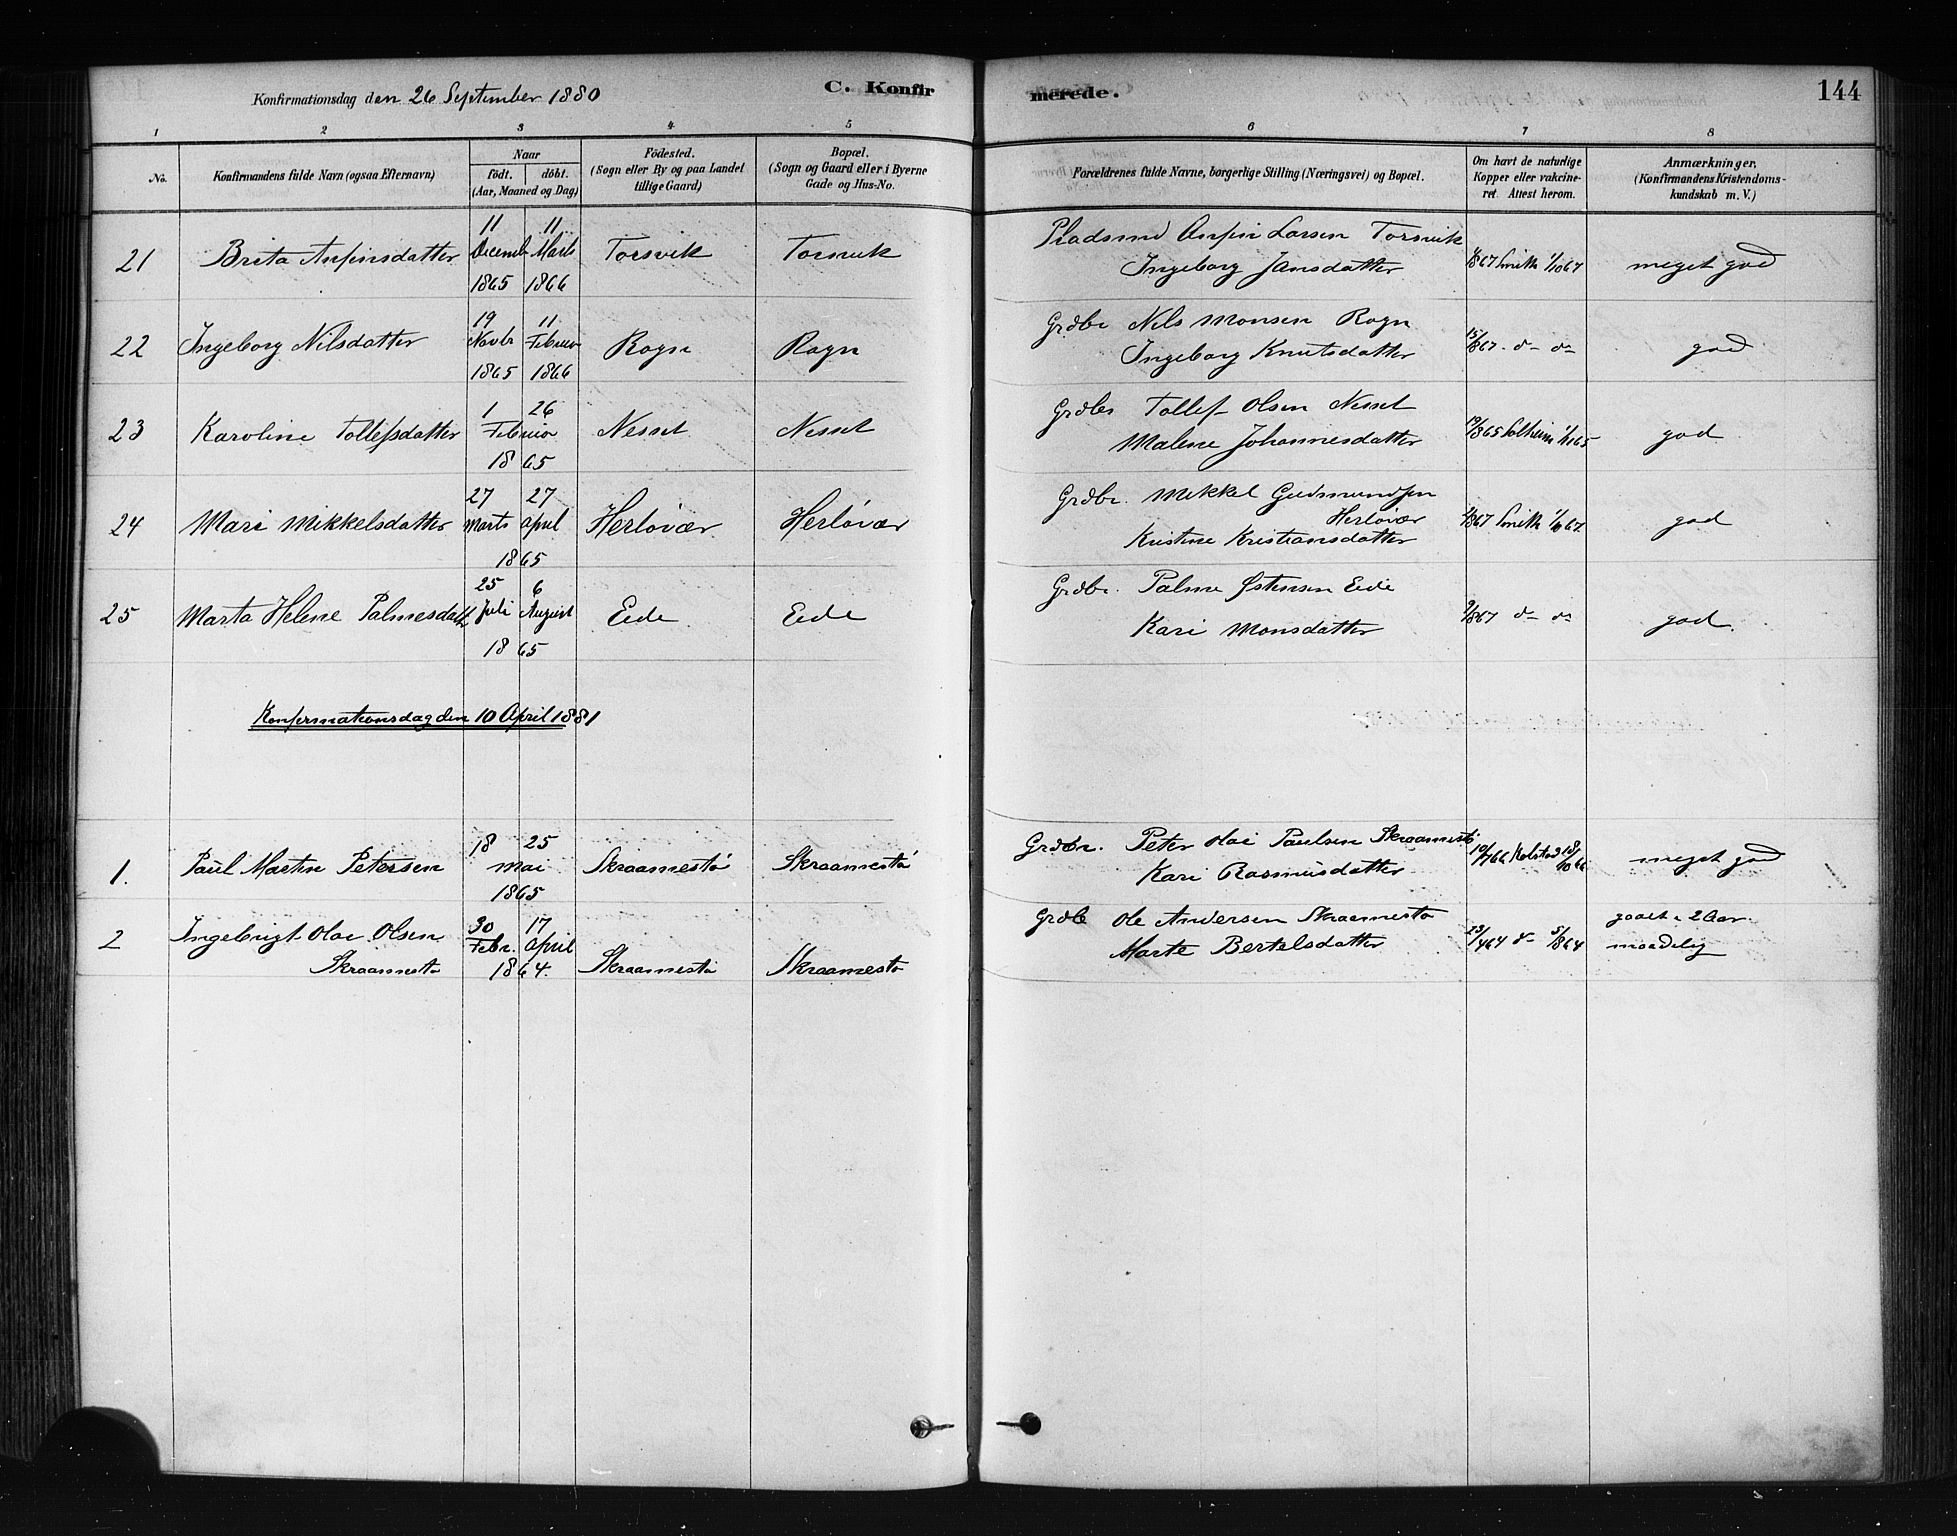 Konfirmationsdag den 26 September 1880
C. Konfirmerede.
144
1 2 3 4 5 6 7 8
No.
Konfirmandens fulde Navn (ogsaa Efternavn)
Naar
födt. döbt.
(Aar, Maaned og Dag)
Födested.
(Sogn eller By og paa Landet
tillige Gaard)
Bopæl.
(Sogn og Gaard eller i Byerne
Gade og Hus-No.
Forældrenes fulde Navne, borgerlige Stilling (Næringsvei) og Bopæl.
Om havt de naturlige
Kopper eller vakcine-
ret. Attest herom.
Anmærkninger.
(Konfirmandens Kristendoms-
kundskab m. V.)
11 11
21 Brita Anfinsdatter Decemb Marts Torsvik Torsvik
1865 1866
Pladsmd Anfin Larsen Torsvik
Ingeborg Jansdatter
Smith 1/10 67 meget god
19 11
22 Ingeborg Nilsdatter Novbr Februar Rogn Rogn
1865 1866
Grdbr Nils Monsen Rogn
Ingeborg Knutsdatter
15/867 d- d- god
1 26
23 Karoline Tollefsdatter Februar Nesset Nesset
1865
Grdbr Tollef Olsen Nesset
Malene Johannesdatter
Solheim god
27 27
24 Mari Mikkelsdatter Marts April Herløvær Herløvær
1865
Grdbr. Mikkel Gudmundsen
Herløvær
Kristine Kristiansdatter
Smith god
25 6
25 Marta Helene Palmesdatt Juli August Eide Eide
1865
Grdbr. Palme Østensen Eide
Kari Monsdatter
9/867 d- d- god.
Konfirmationsdag den 10 April 1881
18 25
1. Paul Martin Petersen Mai Skraamestø Skraamestø
1865
Grdbr. Peter Olai Paulsen Skraamestø
Kari Rasmusdatter
19/766 Kolstad meget god
30 17
2 Ingebrigt Olai Olsen Febr. April
Skraamestø 1864. Skraamestø Skraamestø
Grdb Ole Andersen Skraamestø
Marte Bertelsdatter
23/464 d- 5/864
gaaet 2 Aar.
maadelig